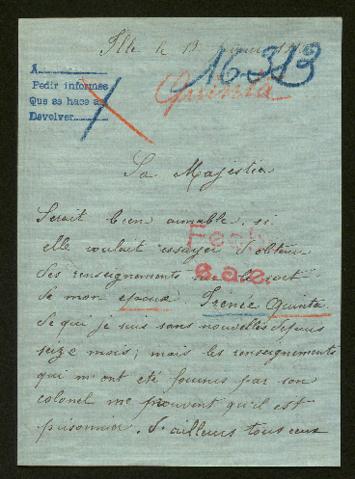 Ille le 13
16313
Quinta
A
Pedir informes
Que se hace
Devolver
Sa Majestée
Serait bien aimable, si
elle voulait essayer d'obtenir
des renseignements sur le sort
de mon epoux Irénée Quinta
de qui je suis sans nouvelles depuis
seize mois; mais les renseignements
qui m'ont été fournis par son
colonel me prouvent qu'il est
prisonnier. D'ailleurs tous ceux